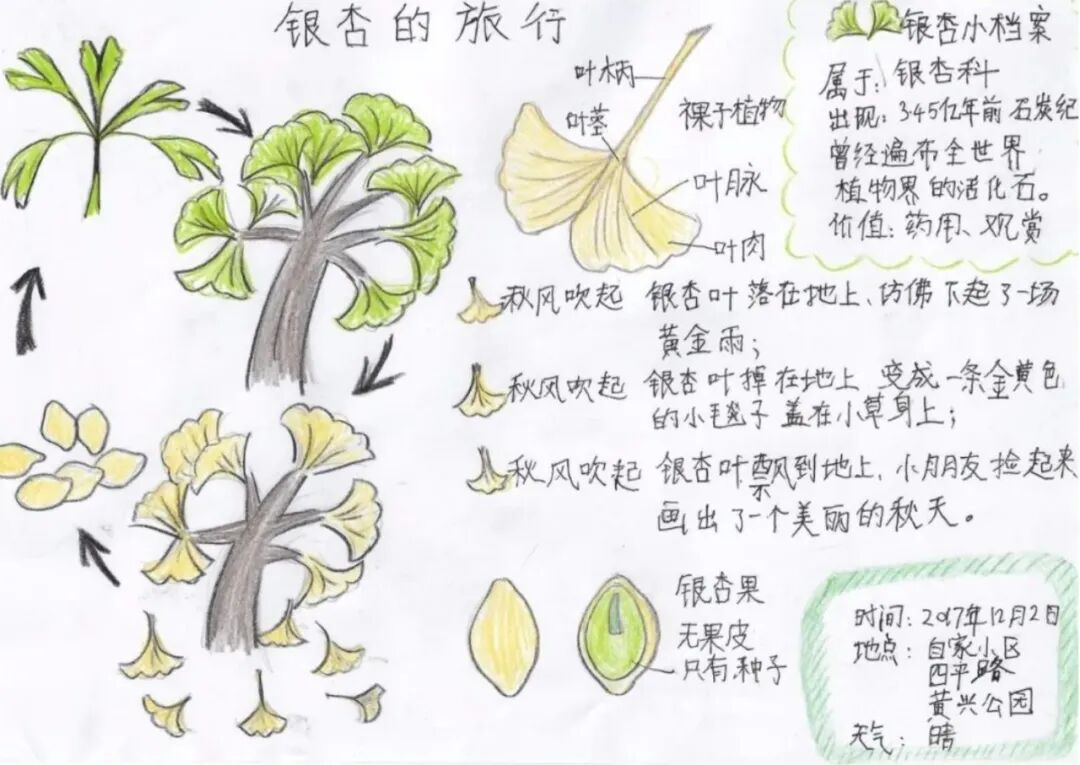 银杏的旅行
银杏小档案
属于:银杏科
出现:3.45亿年前 石炭纪
曾经遍布全世界
植物界的活化石。
价值:药用、观赏
叶柄
叶茎
裸子植物
叶脉
叶肉
秋风吹起 银杏叶落在地上、仿佛下起了一场
黄金雨;
秋风吹起 银杏叶掉在地上 变成一条金黄色
的小毛毯子盖在小草身上;
秋风吹起 银杏叶飘到地上、小朋友捡起来
画出了一个美丽的秋天。
银杏果
无果皮
只有种子
时间:2017年12月2日
地点:自家小区
四平路
黄兴公园
天气:晴